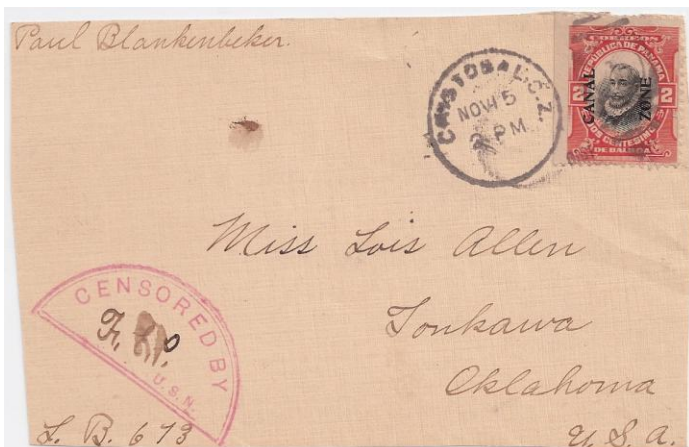 Paul Blankenbeker.
CRISTOBAL, C.Z.
NOV 15
2 PM
CORREOS
REPUBLICA DE PANAMA
2 CANAL ZONE 2
DOS CENTESIMOS
DE BALBOA
Miss Lois Allen
Tonkawa
Oklahoma
U.S.A.
CENSORED BY
U.S.N.
L. B. 673